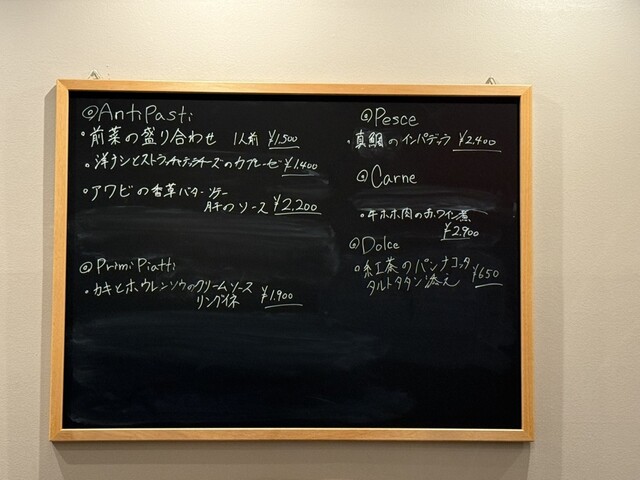 ◎AntiPasti
・前菜の盛り合わせ 1人前 ¥1,500
・洋ナシとストラッチャテッラチーズのカプレーゼ ¥1,400
・アワビの香草バターソテー
肝のソース ¥2,200
◎PrimiPiatti
・カキとホウレンソウのクリームソース
リングイネ ¥1,900
◎Pesce
・真鯛のインパデッラ ¥2,400
◎Carne
・牛ホホ肉の赤ワイン煮
¥2,900
◎Dolce
・紅茶のパンナコッタ
タルトタタン添え ¥650